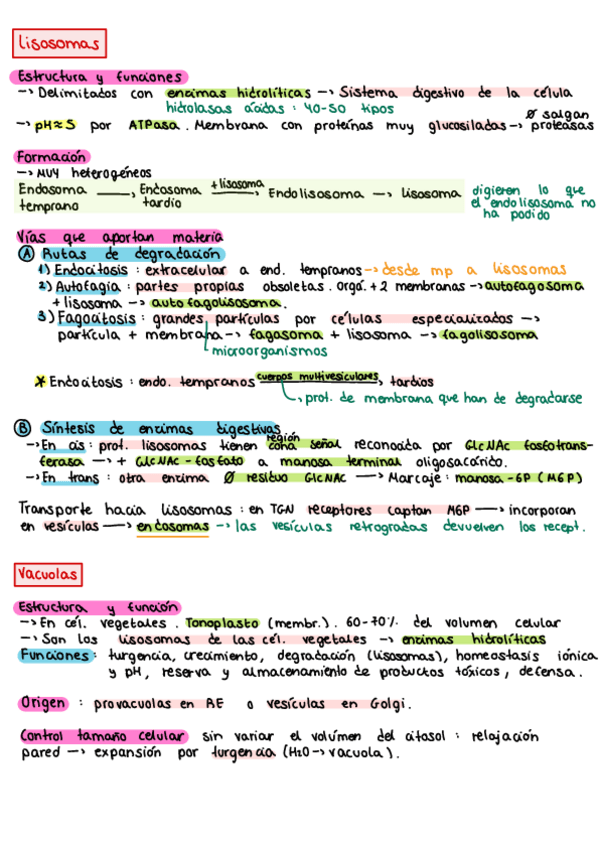 Lisosomas
Estructura y funciones
→ Delimitados con enzimas hidrolíticas → Sistema digestivo de la célula
hidrolasas ácidas : 40-50 tipos
→ pH≈5 por ATPasa. Membrana con proteínas muy glucosiladas → Ø salgan proteasas
Formación
→ Muy heterogéneos
Endosoma temprano → Endosoma tardío + lisosoma → Endolisosoma → Lisosoma digieren lo que el endolisosoma no ha podido
Vías que aportan materia
A Rutas de degradación
1) Endocitosis : extracelular a end. tempranos → desde mp a lisosomas
2) Autofagia : partes propias obsoletas. orgá. + 2 membranas → autofagosoma
+ lisosoma → autofagolisosoma.
3) Fagocitosis : grandes partículas por células especializadas →
partícula + membrana → fagosoma + lisosoma → fagolisosoma
microorganismos
* Endocitosis : endo. tempranos cuerpos multivesiculares → tardíos
prot. de membrana que han de degradarse
B Síntesis de enzimas digestivas
→ En cis : prot. lisosomas tienen región señal reconocida por GlcNAc fosfotrans-
ferasa → + GlcNAc - fosfato a manosa terminal oligosacárido.
→ En trans : otra enzima Ø residuo GlcNAc → Marcaje : manosa-6P (M6P)
Transporte hacia lisosomas : en TGN receptores captan M6P → incorporan
en vesículas → endosomas → las vesículas retrogradas devuelven los recept.
Vacuolas
Estructura y función
→ En cél. vegetales. Tonoplasto (membr.). 60-70% del volumen celular
→ Son los lisosomas de las cél. vegetales → enzimas hidrolíticas
Funciones : turgencia, crecimiento, degradación (lisosomas), homeostasis iónica
y pH, reserva y almacenamiento de productos tóxicos, defensa.
Origen : provacuolas en RE o vesículas en Golgi.
Control tamaño celular sin variar el volúmen del citosol : relajación
pared → expansión por turgencia (H2O → vacuola).